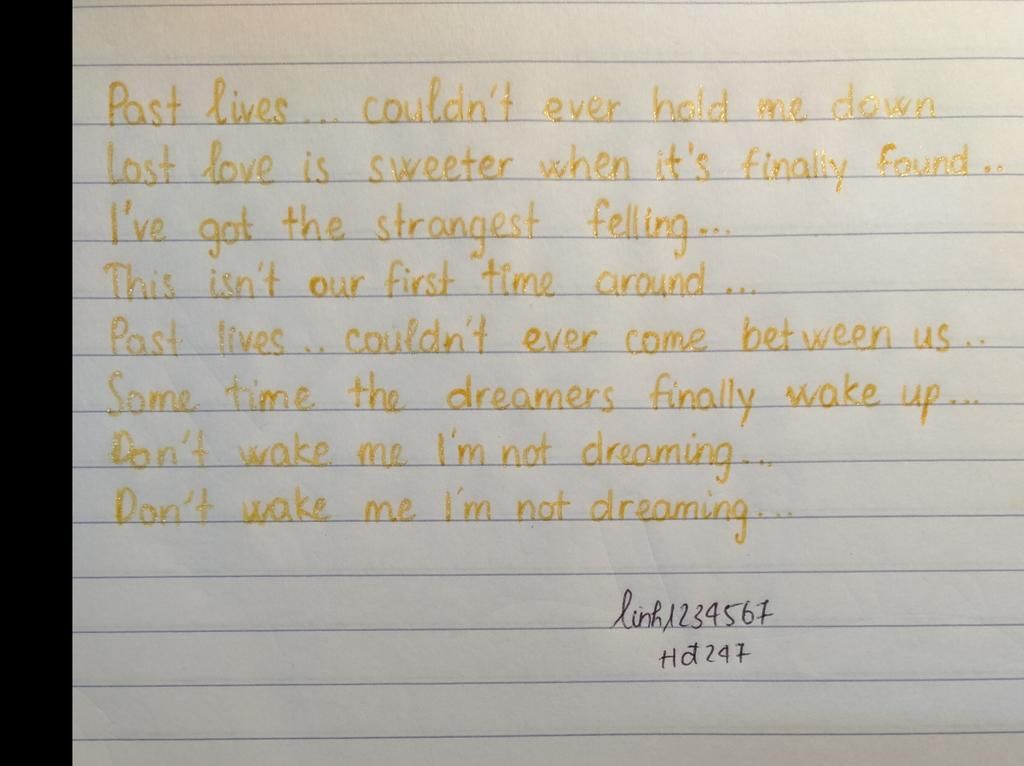 Past lives... couldn't ever hold me down
Lost love is sweeter when it's finally found..
I've got the strangest felling...
This isn't our first time around...
Past lives.. couldn't ever come between us..
Some time the dreamers finally wake up...
Don't wake me I'm not dreaming...
Don't wake me I'm not dreaming...
linh1234567
Hđ247